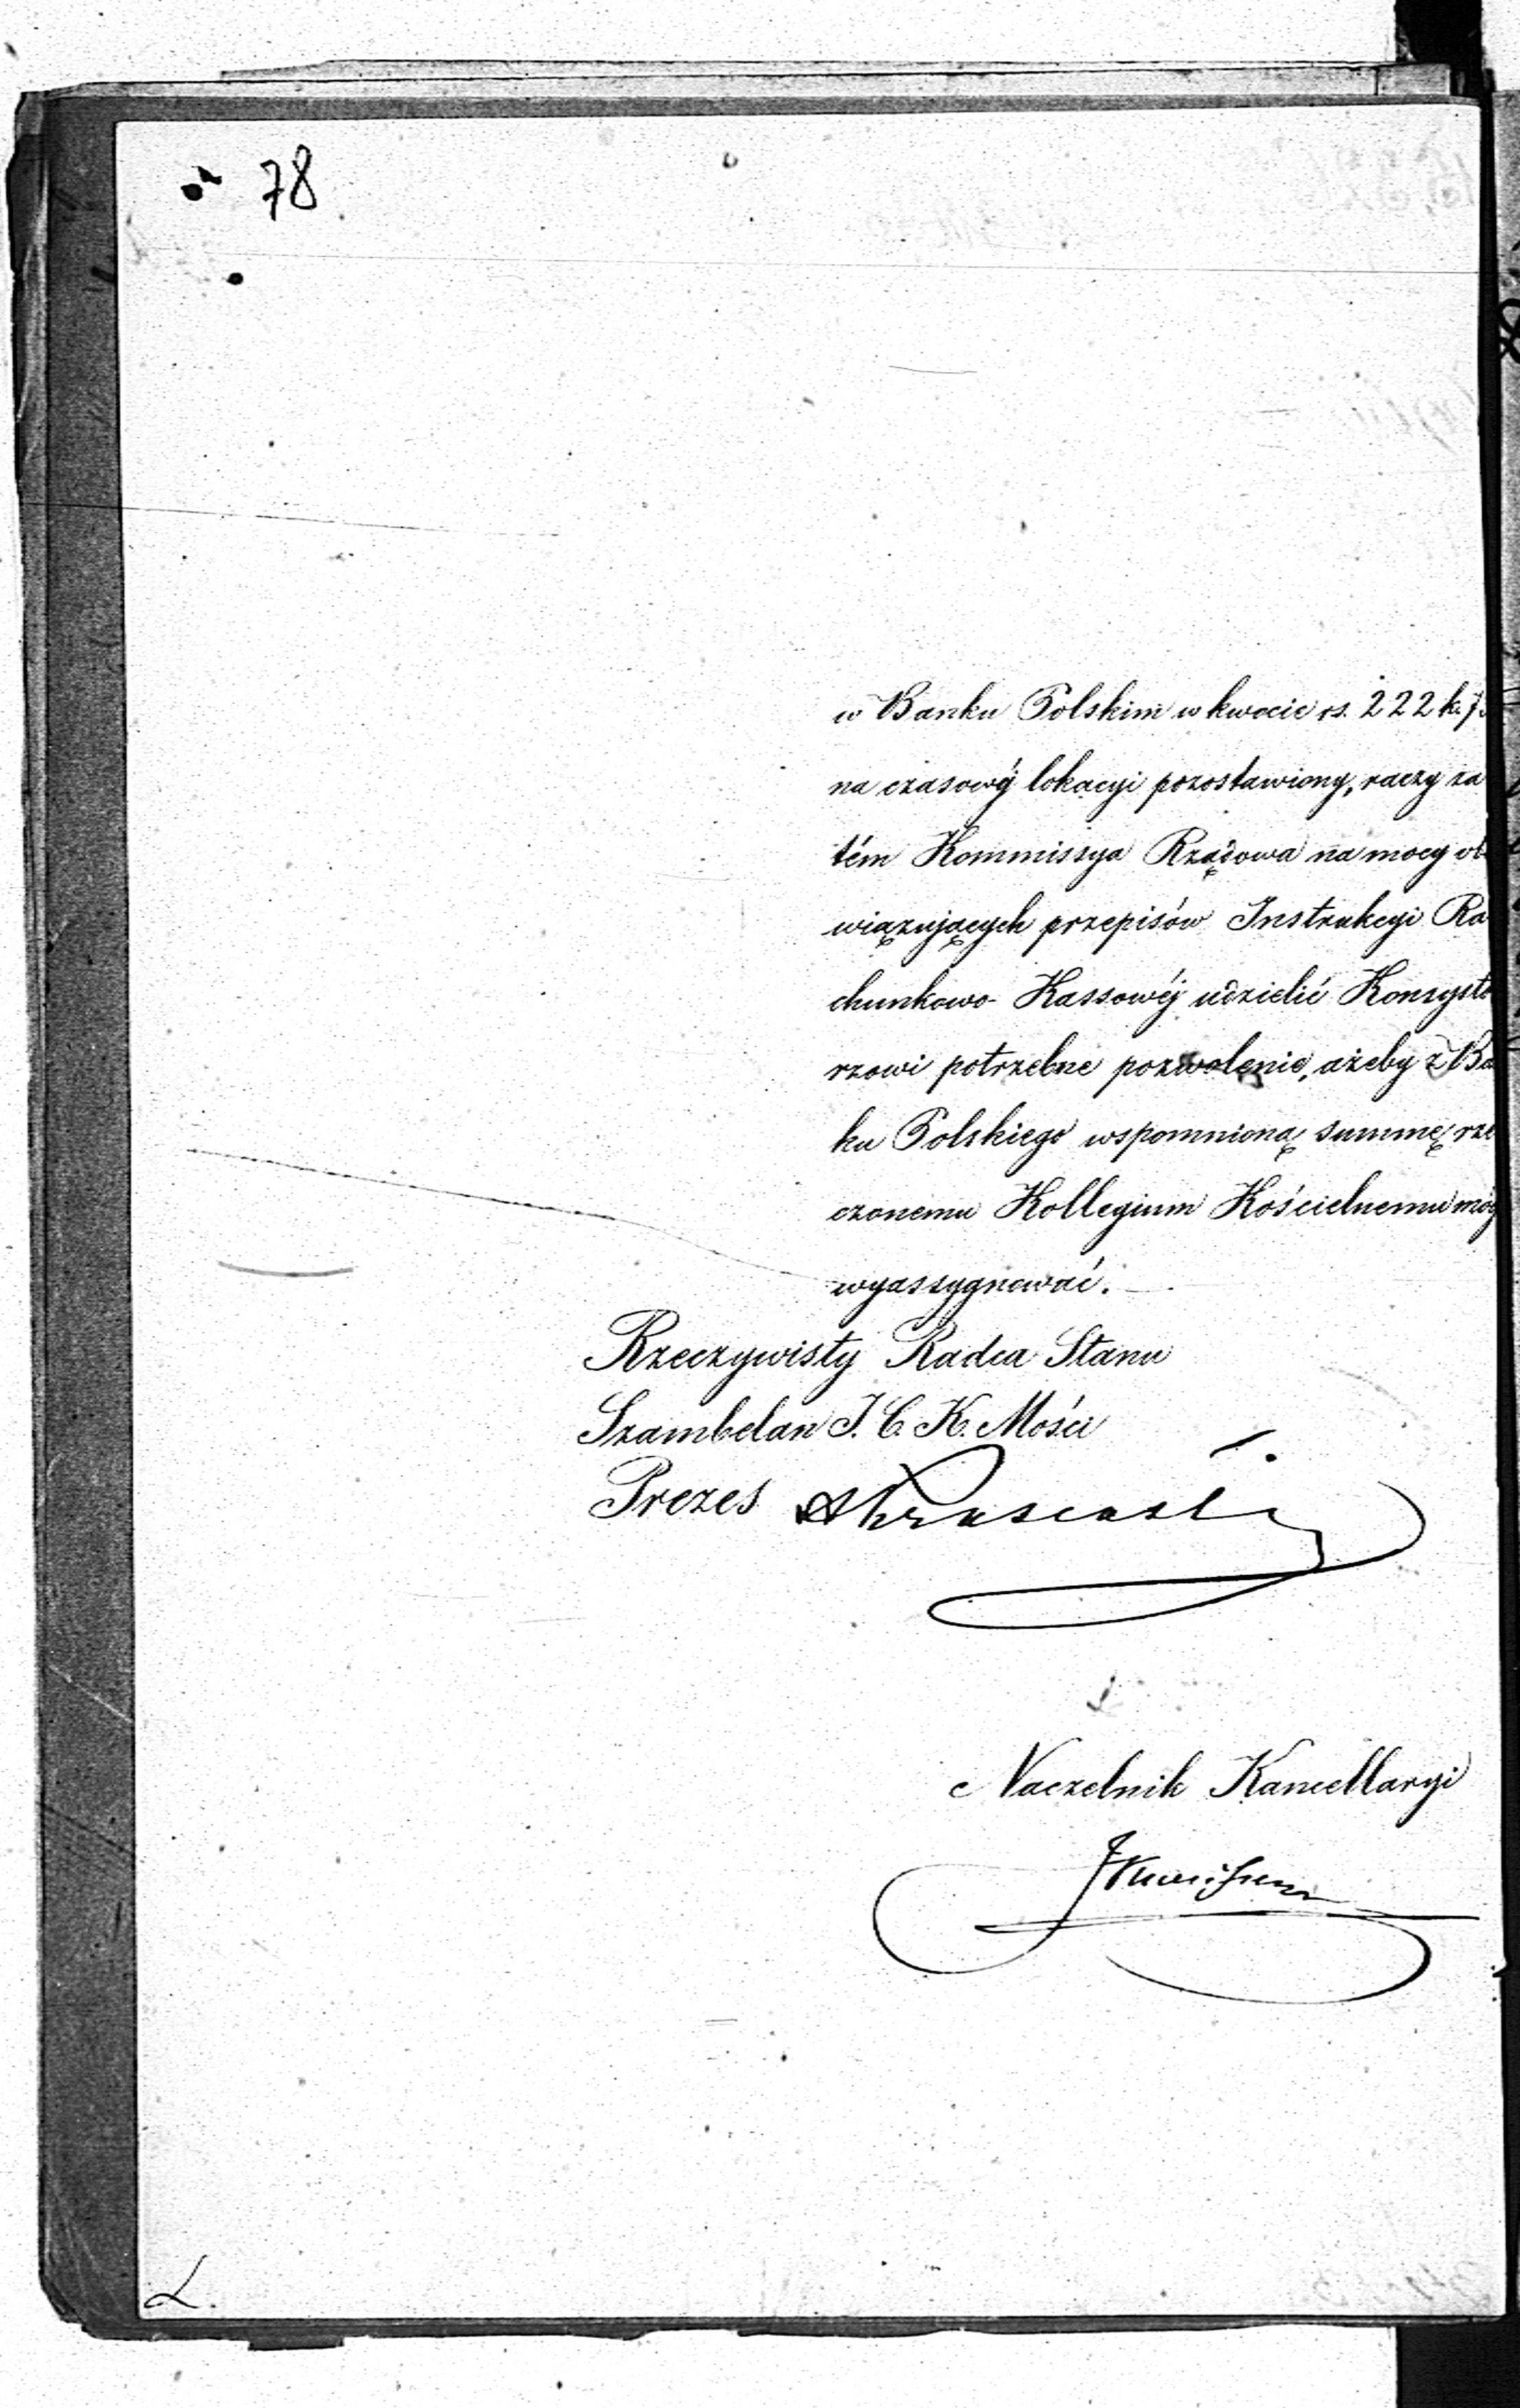 78
w Banku Polskim w kwocie rs. 222 k.
na czasowéj lokacyi pozostawiony, raczy za
tém Kommissya Rządowa na mocy obo
wiązujących przepisów Instrukcyi Ra
chunkowo-Kassowéj udzielić Konsysto
rzowi potrzebne pozwolenie, ażeby z Ba
ku Polskiego wspomnioną summę rze
czonemu Kollegium Kościelnemu mógł
wyassygnować.
Rzeczywisty Radca Stanu
Szambelan J. C. K. Mości
Prezes
Naczelnik Kancellaryi
L.